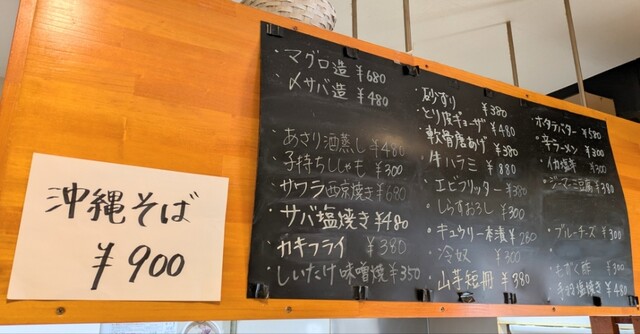 沖縄そば
¥900
・マグロ造 ¥680
・〆サバ造 ¥480
・あさり酒蒸し ¥480
・子持ちししゃも ¥300
・サワラ西京焼き ¥680
・サバ塩焼き ¥480
・カキフライ ¥380
・しいたけ味噌焼 ¥350
・砂ずり ¥380
・とり皮ギョーザ ¥480
・軟骨唐あげ ¥380
・牛ハラミ ¥880
・エビフリッター ¥380
・しらすおろし ¥300
・キュウリ一本漬 ¥280
・冷奴 ¥300
・山芋短冊 ¥380
・ホタテバター ¥580
・辛ラーメン ¥300
・イカ塩辛 ¥300
・ジーマーミ豆腐 ¥380
・ブルーチーズ ¥300
・もずく酢 ¥300
・手羽塩焼き ¥480